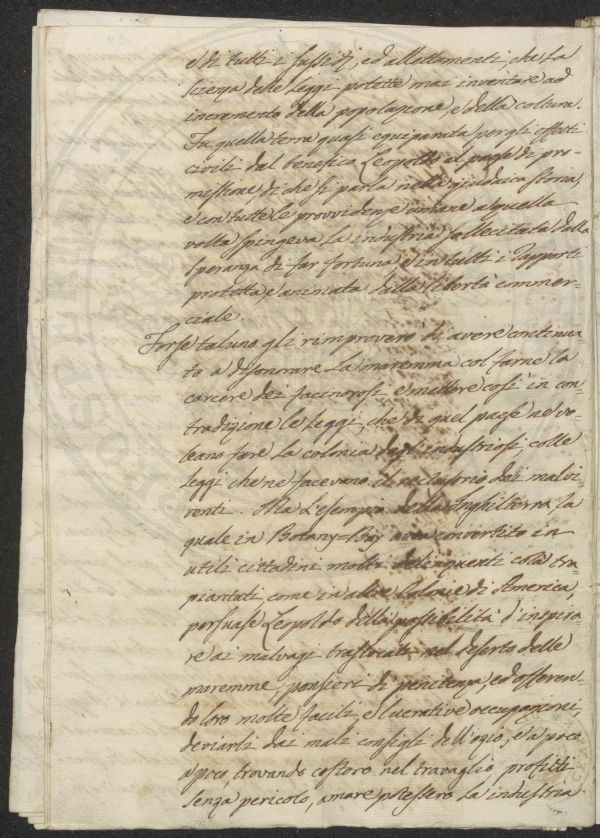 e di tutti i sussidj, ed allettamenti, che la
scienza delle Leggi potette mai inventare ad
incremento della popolazione, e della coltura.
Fu quella terra quasi equiparata per gli effetti
civili dal benefico Leopoldo al paese di pro=
missione di che si parla nella giudaica storia,
e con tutte le provvidenze umane a quella
volta spingeva la industria sollecitata dalla
speranza di far fortuna e in tutti i rapporti
protetta, e animata dalla libertà commer=
ciale.
Forse taluno gli rimproverò di avere continua=
to a disonorare la maremma col farne la
carcere dei facinorosi e mettere così in con=
tradizione le Leggi, che di quel paese ne vo=
leano fare la colonia degl'industriosi, colle
Leggi che ne facevano il reclusorio dei malvi=
venti. Ma l'esempio della Inghilterra, la
quale in Botany=Bay avea convertito in
utili cittadini molti delinquenti colà tra=
piantati come in altre Colonie di America,
persuase Leopoldo della possibilità d'inspira
re ai malvagi traslocati nel deserto delle
maremme, pensieri di penitenza, ed offeren=
do loro molte facili, e lucrative occupazioni,
deviarli dai mali consigli dell'ozio, e a poco
a poco, trovando costoro nel travaglio profitti
senza pericolo, amare potessero la industria